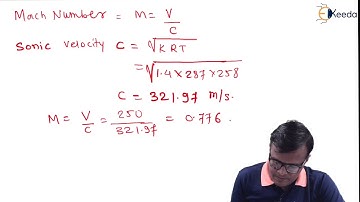 Mach Number = M = V/C
Ekeeda
Sonic Velocity C = √KRT
= √1.4×287×258
C = 321.97 m/s.
M = V/C = 250/321.97 = 0.776.